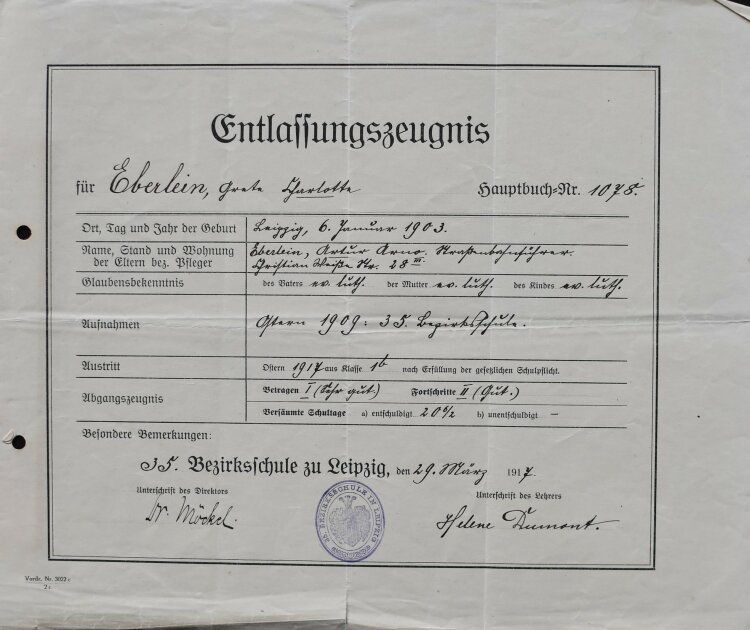 Entlassungszeugnis
für Eberlein, Grete Charlotte Hauptbuch-Nr. 1078.
Ort, Tag und Jahr der Geburt Leipzig, 6. Januar 1903.
Name, Stand und Wohnung der Eltern bez. Pfleger Eberlein, Artur Arno. Straßenbahnführer.
Christian Weiße Str. 28 III.
Glaubensbekenntnis des Vaters ev. luth. der Mutter ev. luth. des Kindes ev. luth.
Aufnahmen Ostern 1909: 35. Bezirksschule.
Austritt Ostern 1917 aus Klasse 1b nach Erfüllung der gesetzlichen Schulpflicht.
Abgangszeugnis Betragen I (Sehr gut.) Fortschritte II (Gut.)
Versäumte Schultage a) entschuldigt b) unentschuldigt –
Besondere Bemerkungen:
35. Bezirksschule zu Leipzig, den 29. März 1917.
Unterschrift des Direktors Unterschrift des Lehrers
Dr. Möckel. Helene Dumont.
35. BEZIRKSSCHULE IN LEIPZIG
Vordr. Nr. 3022 c
2 c